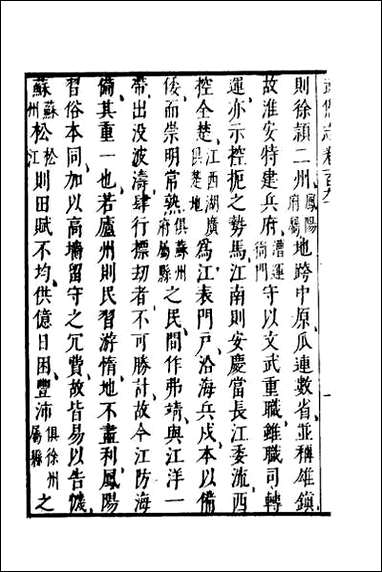 則徐潁二州鳳陽府屬地跨中原瓜連數省並稱雄鎮
故淮安特建兵府漕運衙門守以文武重職雖職司轉
運亦示控扼之勢馬江南則安慶當長江委流西
控全楚江西湖廣爲江表門戶沿海兵戍本以備
倭而崇明常熟俱蘇州府屬縣之民間作弗靖與江洋一
帶出没波濤肆行摽刼者不可勝計故今江防海
備其重一也若廬州則民習游惰地不盡利鳳陽
習俗本同加以高墻留守之冗費故皆易以告饑
蘇蘇州松松江則田賦不均供億日困豐沛俱徐州屬縣之